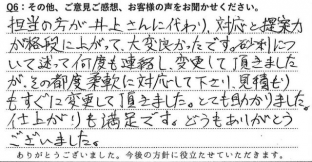 Q6：その他、ご意見ご感想、お客様の声をお聞かせください。
担当の方が井上さんに代わり、対応と提案力
が格段に上がって、大変良かったです。砂利につ
いて迷って何度も連絡し、変更して頂きました
が、その都度柔軟に対応して下さり、見積もり
もすぐに変更して頂きました。とても助かりました。
仕上がりも満足です。どうもありがとう
ございました。
ありがとうございました。今後の方針に役立たせていただきます。